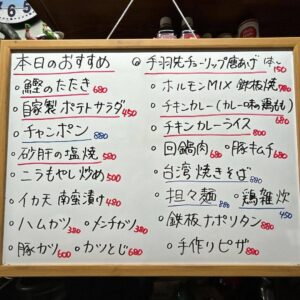 本日のおすすめ
・鰹のたたき 680
・自家製ポテトサラダ 450
・チャンポン 880
・砂肝の塩焼 580
・ニラもやし炒め 500
・イカ天南蛮漬け 480
・ハムカツ 380 ・メンチカツ 380
・豚カツ 600 ・カツとじ 680
◎手羽先チューリップ唐あげ 150
・ホルモンMIX鉄板焼 980
・チキンカレー(カレー味の鶏もも) 680
・チキンカレーライス 800
・回鍋肉 680 ・豚キムチ 680
・台湾焼きそば 680
・担々麺 880 ・鶏雑炊 450
・鉄板ナポリタン 880
・手作りピザ 880